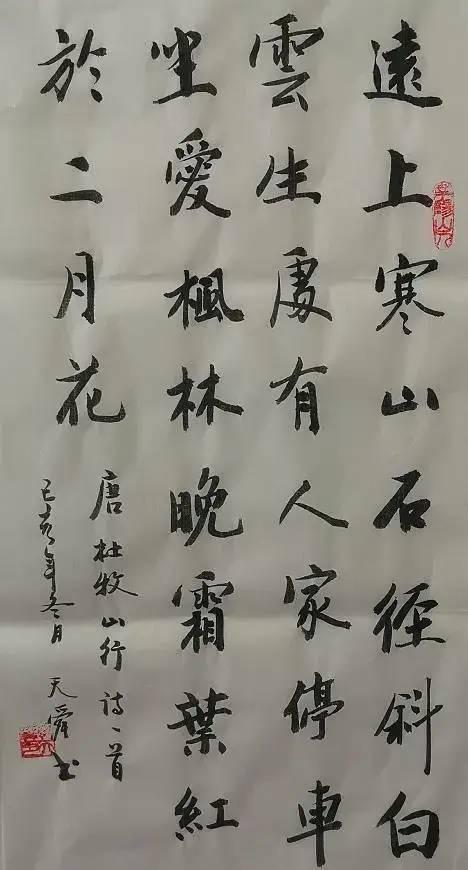 遠上寒山石徑斜白
雲生處有人家停車
坐愛楓林晚霜葉紅
於二月花
唐杜牧山行詩一首
己亥年冬月天舜书